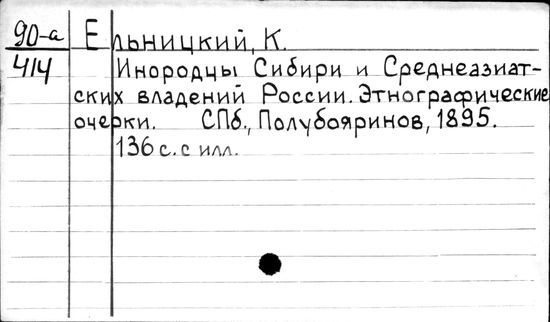 90-а Ельницкий, К.
414 Инородцы Сибири и Среднеазиат-
ских владений России. Этнографические
очерки. СПб., Полубояринов, 1895.
136 с. с илл.